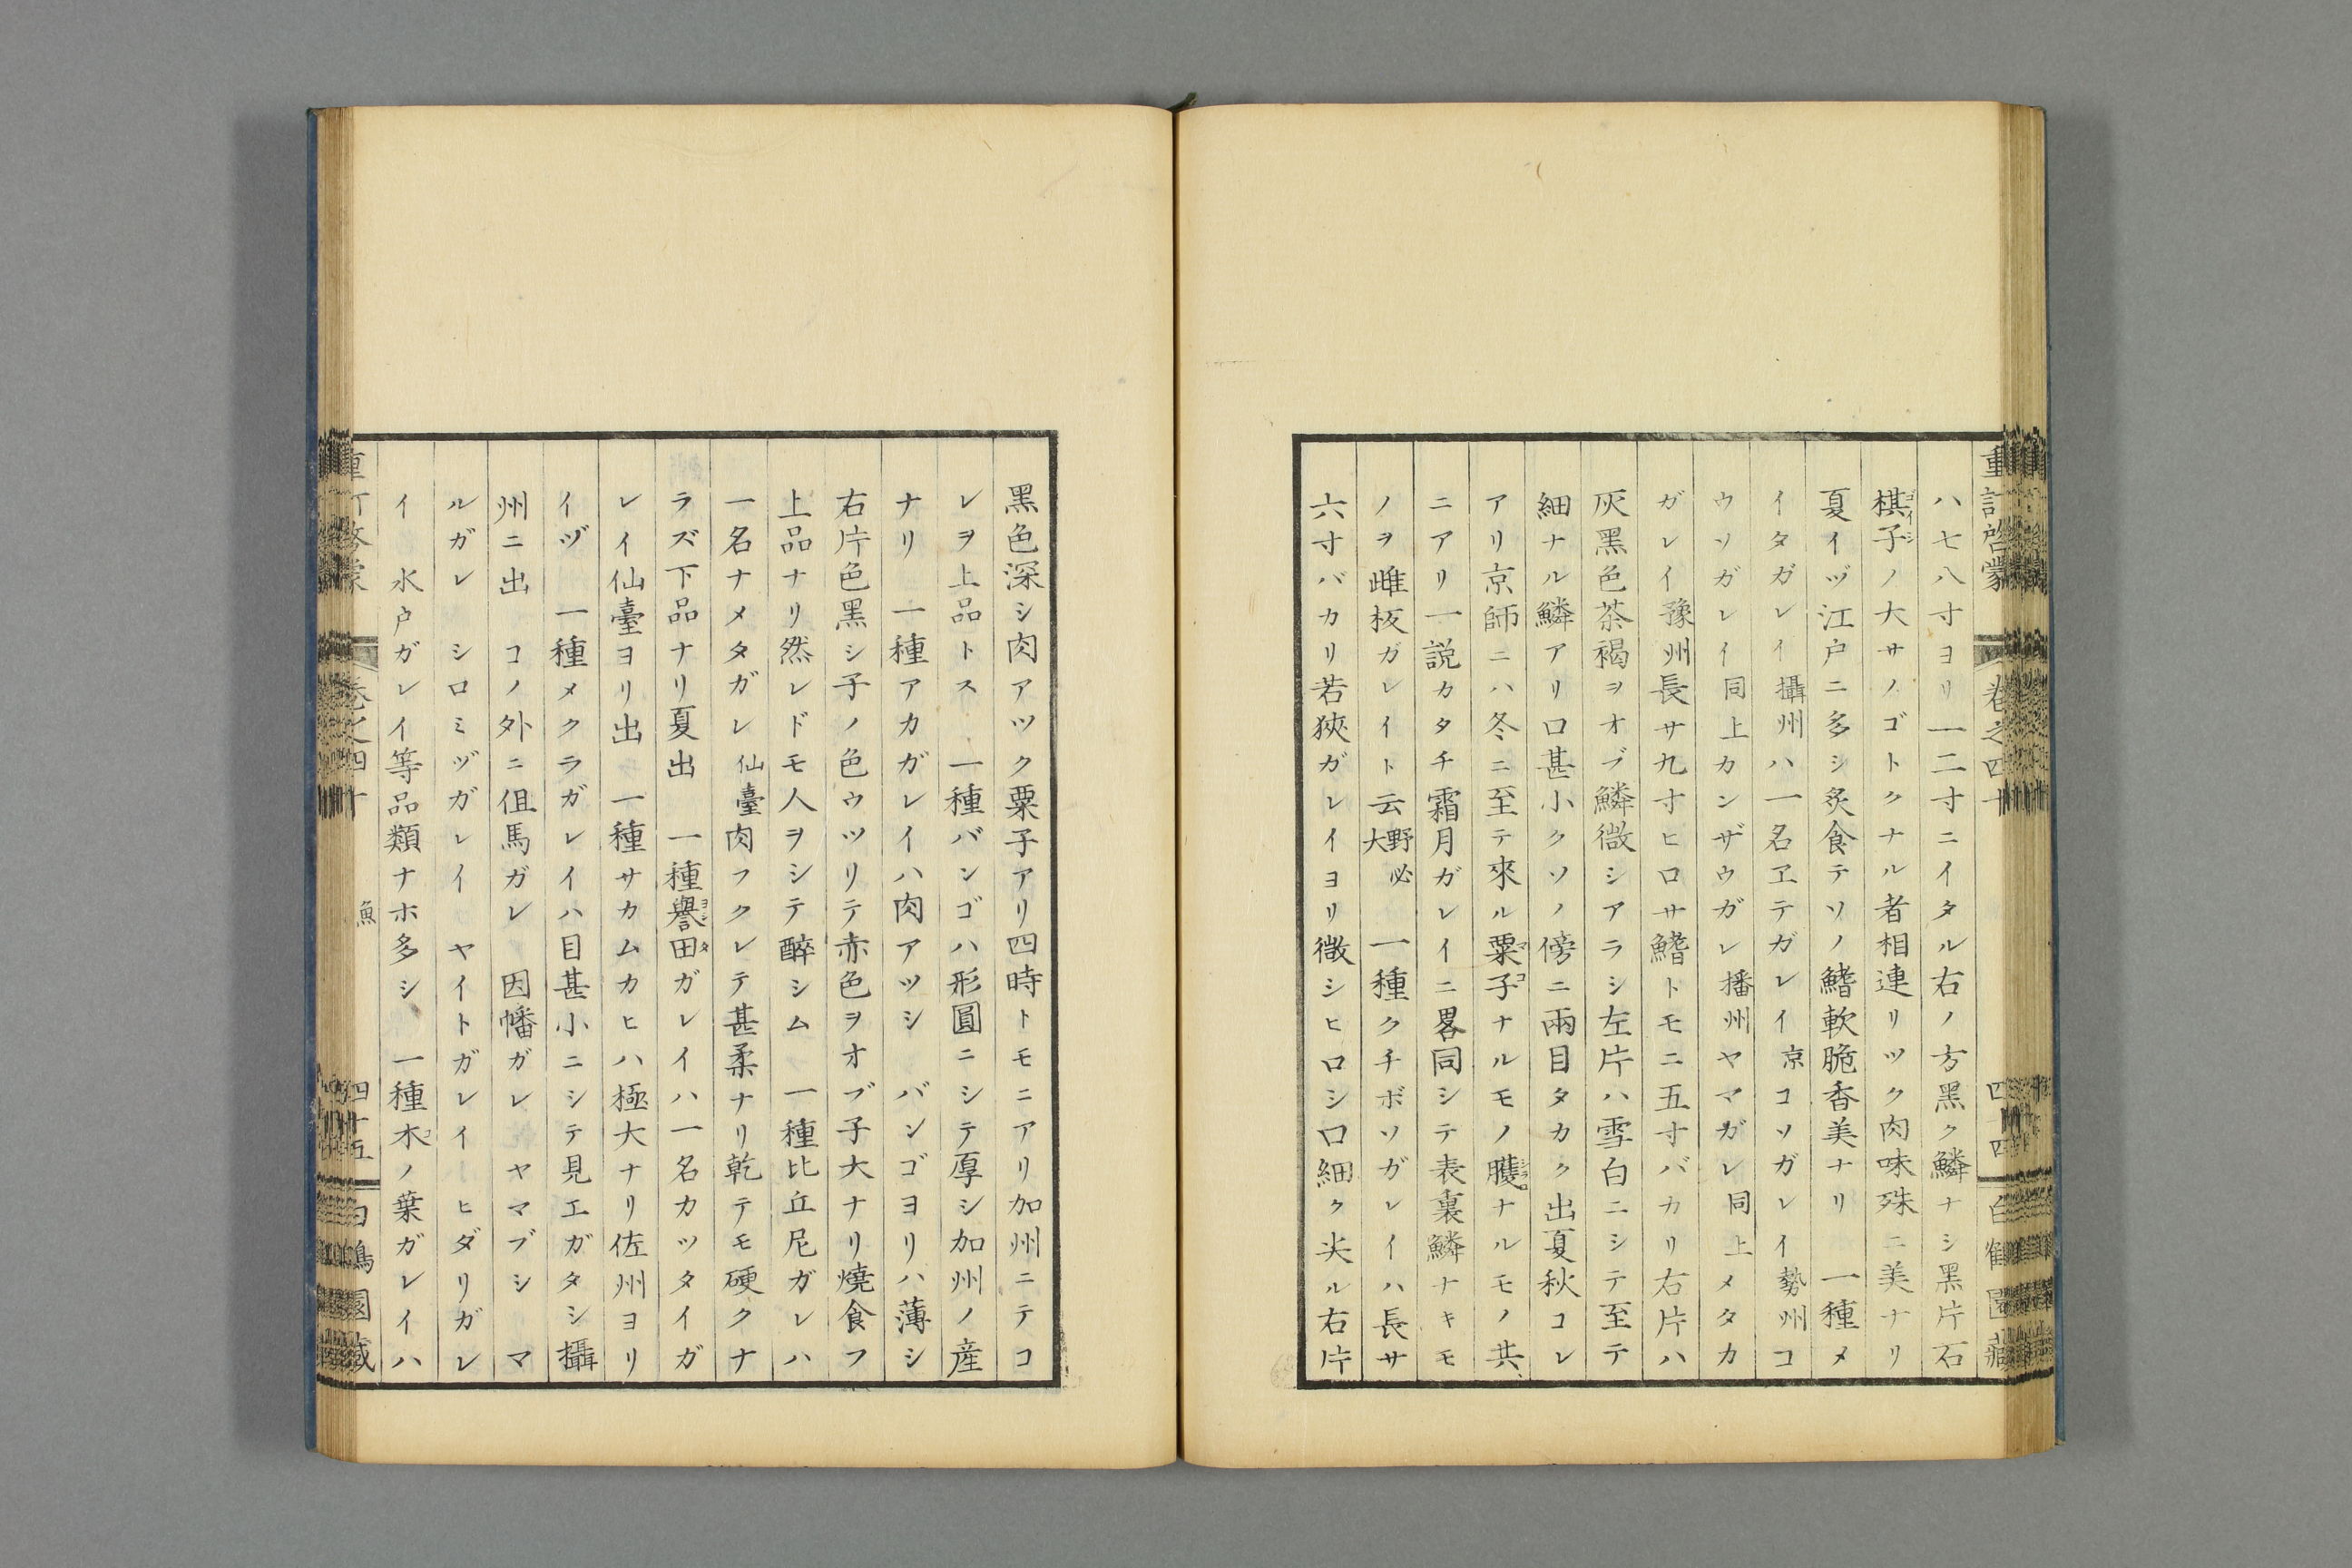 重訂啓蒙 卷之四十 四十四 白鶴園藏
ハ七八寸ヨリ一二寸ニイタル右ノ方黑ク鱗ナシ黑片石
棋子ノ大サノゴトクナル者相連リツク肉味殊ニ美ナリ
夏イヅ江戸ニ多シ炙食テソノ鰭軟脆香美ナリ 一種メ
イタガレイ攝州ハ一名ヱテガレイ京コソガレイ勢州コ
ウソガレイ同上カンザウガレ播州ヤマガレ同上メタカ
ガレイ豫州長サ九寸ヒロサ鰭トモニ五寸バカリ右片ハ
灰黑色茶褐ヲオブ鱗微シアラシ左片ハ雪白ニシテ至テ
細ナル鱗アリ口甚小クソノ傍ニ兩目タカク出夏秋コレ
アリ京師ニハ冬ニ至テ來ル粟子ナルモノ臒ナルモノ共
ニアリ一説カタチ霜月ガレイニ畧同シテ表裏鱗ナキモ
ノヲ雌板ガレイト云大野必 一種クチボソガレイハ長サ
六寸バカリ若狹ガレイヨリ微シヒロシ口細ク尖ル右片
黑色深シ肉アツク粟子アリ四時トモニアリ加州ニテコ
レヲ上品トス 一種バンゴハ形圓ニシテ厚シ加州ノ産
ナリ 一種アカガレイハ肉アツシ バンゴヨリハ薄シ
右片色黑シ子ノ色ウツリテ赤色ヲオブ子大ナリ燒食フ
上品ナリ然レドモ人ヲシテ醉シム 一種比丘尼ガレハ
一名ナメタガレ仙臺肉フクレテ甚柔ナリ乾テモ硬クナ
ラズ下品ナリ夏出 一種譽田ガレイハ一名カツタイガ
レイ仙臺ヨリ出 一種サカムカヒハ極大ナリ佐州ヨリ
イヅ 一種メクラガレイハ目甚小ニシテ見エガタシ攝
州ニ出 コノ外ニ伹馬ガレ 因幡ガレ ヤマブシ マ
ルガレ シロミヅガレイ ヤイトガレイ ヒダリガレ
イ 水戸ガレイ等品類ナホ多シ 一種木ノ葉ガレイハ
重訂啓蒙 卷之四十 魚 四十五 白鶴園藏